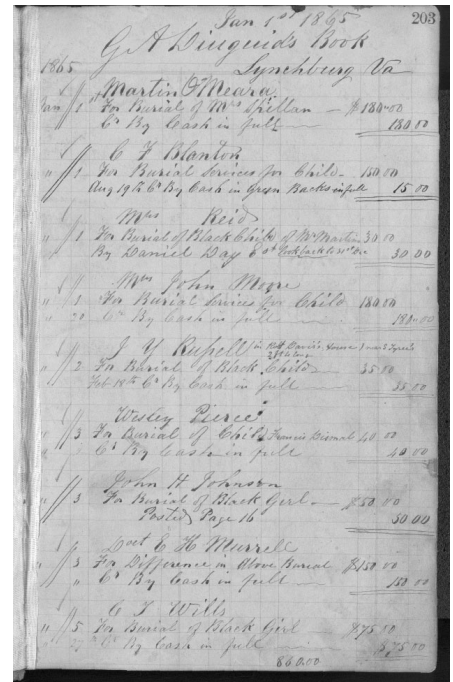 203
Jan 1st 1865
G A Diuguid's Book
1865 Lynchburg Va
Martin O'Meara
Jan 1 For Burial of Mrs Spillan $180.00
Cr By Cash in full 180 00
C F Blanton
" 1 For Burial Services for Child 180 00
Aug 19th Cr By Cash in Green Backs in full 15 00
Mrs Reid
" 1 For Burial of Black Child of Mr Martin 30 00
By Daniel Day 30 00
Mrs John Moore
" 1 For Burial Services for Child 180 00
" 20 Cr By Cash in full 180 00
J Y Russell in House
" 2 For Burial of Black Child 35 00
Feb 18th Cr By Cash in full 35 00
Wesley Pierce
" 3 For Burial of Child Francis 40 00
Cr By Cash in full 40 00
John H Johnson
" 3 For Burial of Black Girl $50 00
Posted Page 16 50 00
Doct E H Murrell
" 3 For Difference in Above Burial $150 00
" Cr By Cash in full 150 00
C T Wills
" 5 For Burial of Black Girl $75 00
Cr By Cash in full 75 00
860.00